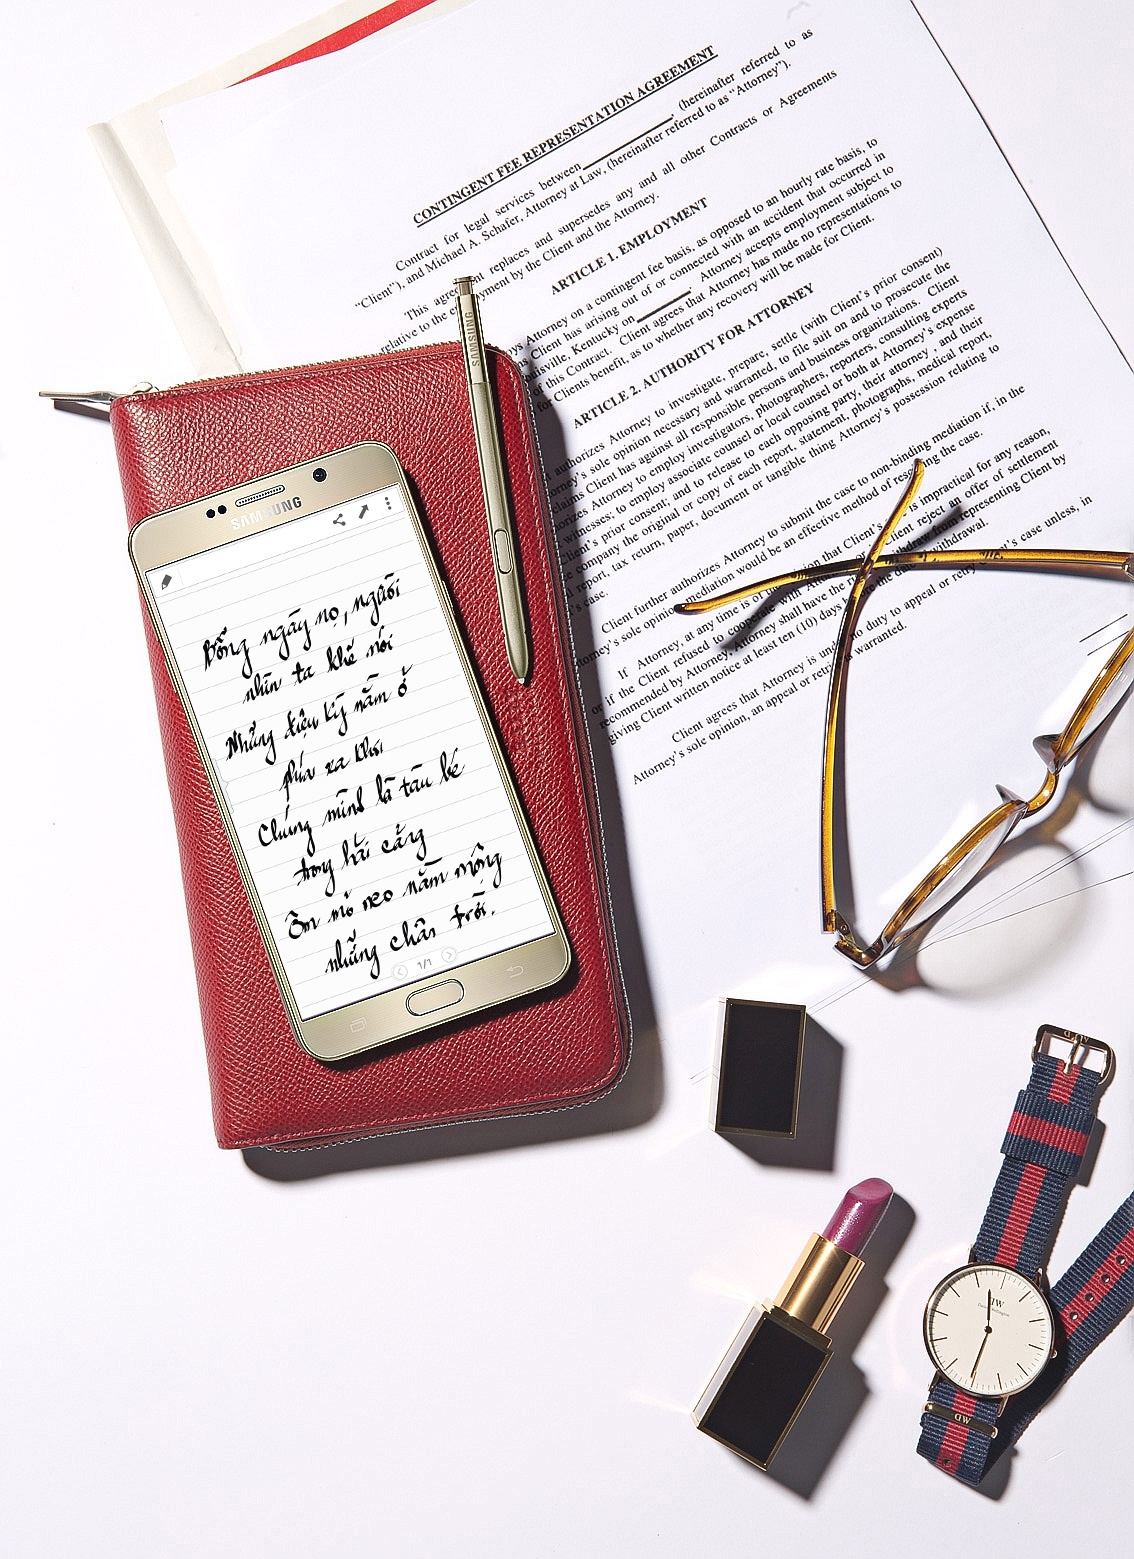 CONTINGENT FEE REPRESENTATION AGREEMENT
Contract for legal services between (hereinafter referred to as
"Client"), and Michael A. Schafer, Attorney at Law, (hereinafter referred to as "Attorney").
This agreement replaces and supersedes any and all other Contracts or Agreements
relative to the by the Client and the Attorney.
ARTICLE 1. EMPLOYMENT
Attorney on a contingent fee basis, as opposed to an hourly rate basis, to
Client has arising out of or connected with an accident that occurred in
Kentucky on . Attorney accepts employment subject to
of this Contract. Client agrees that Attorney has made no representations to
for Clients benefit, as to whether any recovery will be made for Client.
ARTICLE 2. AUTHORITY FOR ATTORNEY
authorizes Attorney to investigate, prepare, settle (with Client's prior consent)
sole opinion necessary and warranted, to file suit on and to prosecute the
claims Client has against all responsible persons and business organizations. Client
Attorney to employ investigators, photographers, reporters, consulting experts
witnesses; to employ associate counsel or local counsel or both at Attorney's expense
Client's prior consent; and to release to each opposing party, their attorney, and their
company the original or copy of each report, statement, photographs, medical report,
report, tax return, paper, document or tangible thing Attorney's possession relating to
case.
Client further authorizes Attorney to submit the case to non-binding mediation if, in the
Attorney's sole opinion, mediation would be an effective method of the case.
If Attorney, at any time is of the that Client's is impractical for any reason,
or if the Client refused to cooperate with Attorney or Client reject an offer of settlement
recommended by Attorney, Attorney shall have the withdraw from representing Client by
giving Client written notice at least ten (10) days the withdrawal.
Client agrees that Attorney is under no duty to appeal or retry case unless, in
Attorney's sole opinion, an appeal or retrial is warranted.
SAMSUNG
SAMSUNG
Bỗng ngày nọ, người
nhìn ta khẽ nói
Những điều kỳ nằm ở
phía xa khơi
Chúng mình là tàu bé
trong hải cảng
Ôm mỏ neo nằm mộng
những chân trời.
1/1
DW
DW
Daniel Wellington
DW